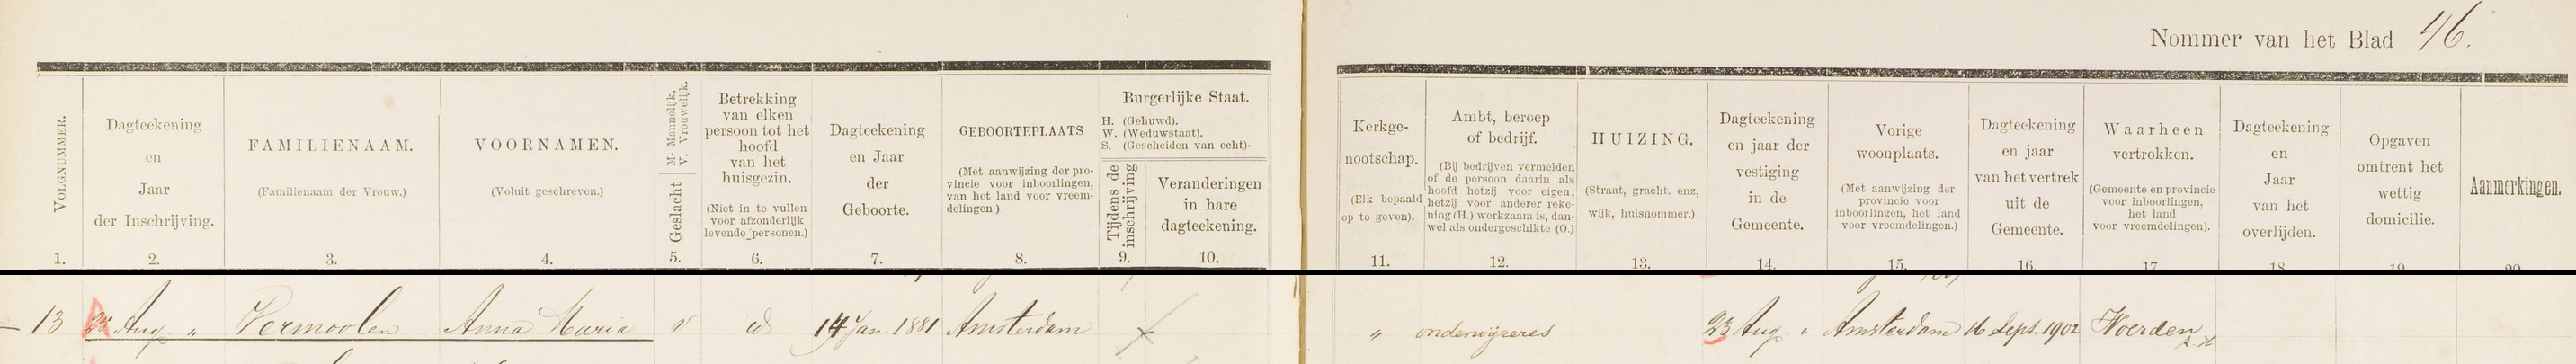 Nommer van het Blad 46.
VOLGNUMMER.
1.
Dagteekening
en
Jaar
der Inschrijving.
2.
FAMILIENAAM.
(Familienaam der Vrouw.)
3.
VOORNAMEN.
(Voluit geschreven.)
4.
M. Mannelijk,
V. Vrouwelijk.
Geslacht
5.
Betrekking
van elken
persoon tot het
hoofd
van het
huisgezin.
(Niet in te vullen
voor afzonderlijk
levende personen.)
6.
Dagteekening
en Jaar
der
Geboorte.
7.
GEBOORTEPLAATS
(Met aanwijzing der pro-
vincie voor inboorlingen,
van het land voor vreem-
delingen)
8.
Burgerlijke Staat.
H. (Gehuwd).
W. (Weduwstaat).
S. (Gescheiden van echt)-
Tijdens de
inschrijving
9.
Veranderingen
in hare
dagteekening.
10.
Kerkge-
nootschap.
(Elk bepaald
op te geven).
11.
Ambt, beroep
of bedrijf.
(Bij bedrijven vermelden
of de persoon daarin als
hoofd hetzij voor eigen,
hetzij voor anderer reke-
ning (H.) werkzaam is, dan-
wel als ondergeschikte (O.)
12.
HUIZING.
(Straat, gracht. enz,
wijk, huisnommer.)
13.
Dagteekening
en jaar der
vestiging
in de
Gemeente.
14.
Vorige
woonplaats.
(Met aanwijzing der
provincie voor
inboorlingen, het land
voor vreemdelingen.)
15.
Dagteekening
en jaar
van het vertrek
uit de
Gemeente.
16.
Waarheen
vertrokken.
(Gemeente en provincie
voor inboorlingen,
het land
voor vreemdelingen).
17
Dagteekening
en
Jaar
van het
overlijden.
18
Opgaven
omtrent het
wettig
domicilie.
19
Aanmerkingen.
20
13 Aug. " Vermoolen Anna Maria v id 14 Jan. 1881 Amsterdam " onderwijzeres 23 Aug. " Amsterdam 16 Sept. 1902 Woerden
Z.H